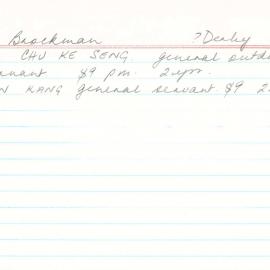 Brockman ?Derby
CHU KE SENG. general outdo
$9 p.m. 2 yrs.
KANG general servant $9 2